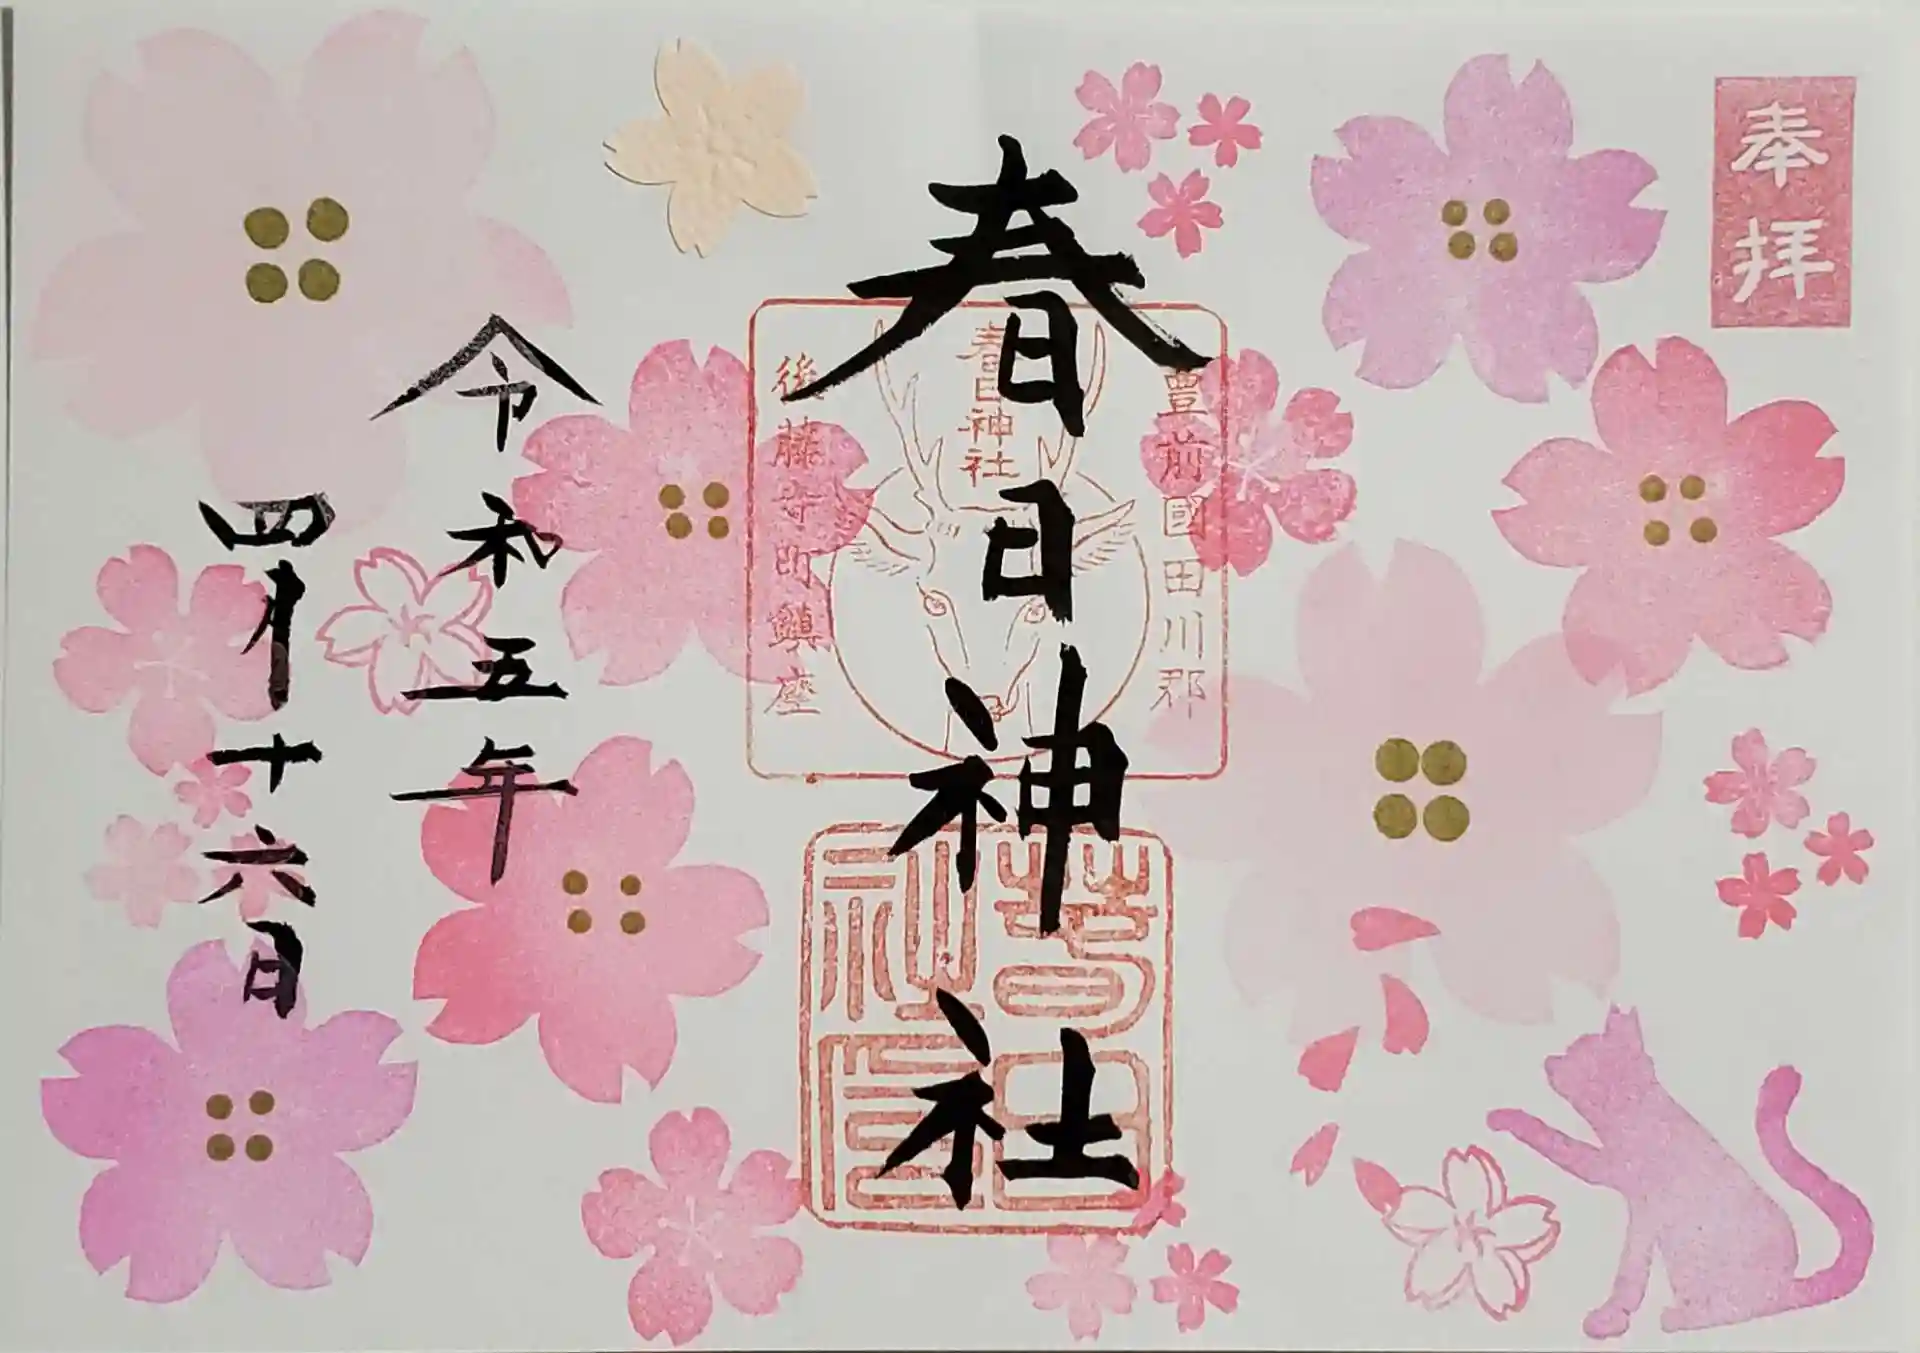 奉拝
春日神社
豊前國田川郡
春日神社
後藤寺町鎮座
春日神社印
令和五年
四月十六日